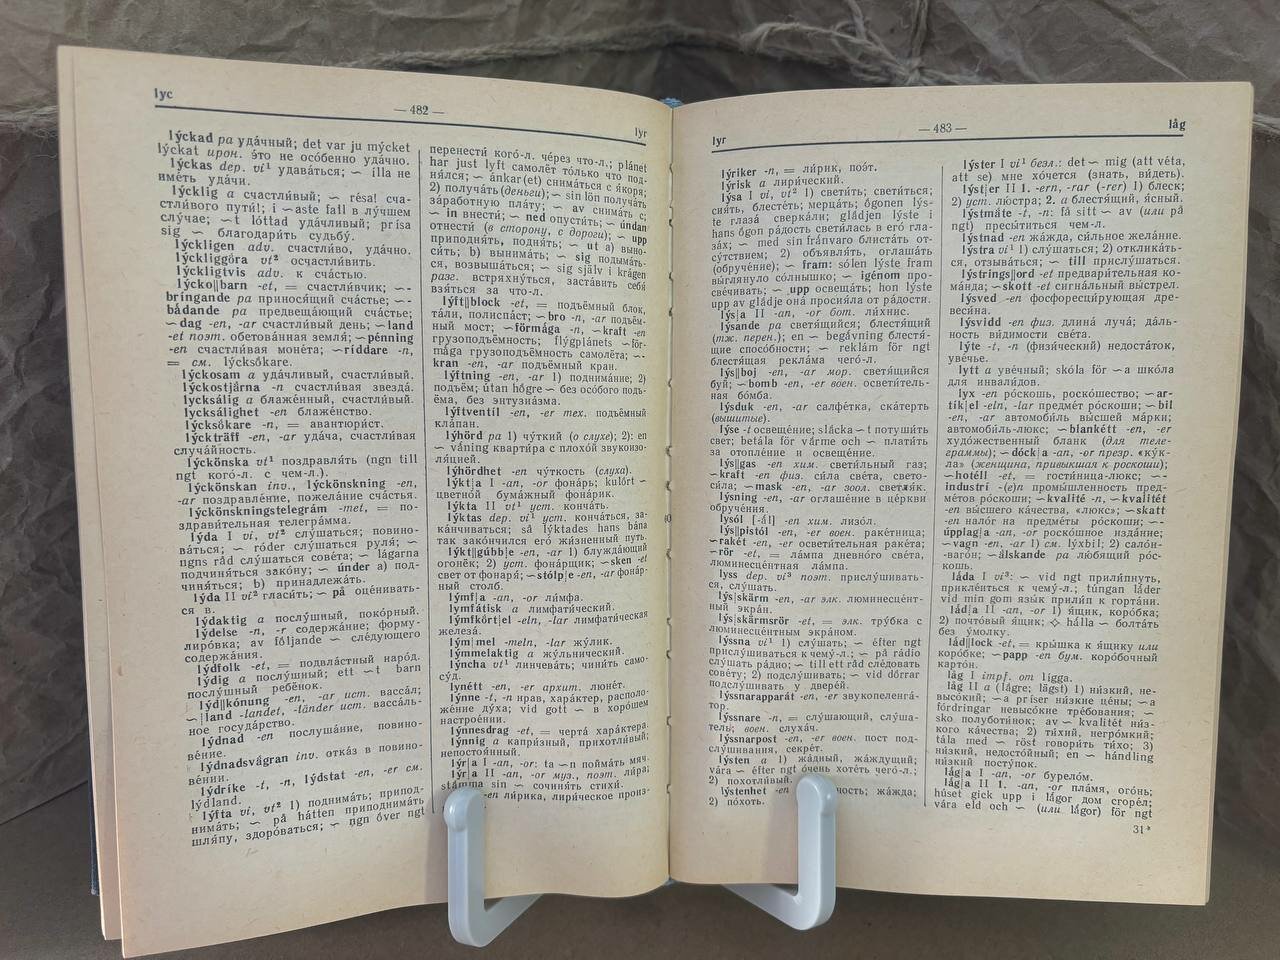 lyc
— 482 —
lyr
lýckad pa удáчный; det var ju mýcket
lýckat ирон. э́то не осо́бенно удáчно.
lýckas dep. vi¹ удавáться; ~ ílla не
имéть удáчи.
lýcklig a счастли́вый; ~ résa! сча-
стли́вого пути́!; i ~aste fall в лу́чшем
слу́чае; ~t lóttad удáчливый; prísa
sig ~ благодари́ть судьбу́.
lýckligen adv. счáстливо, удáчно.
lýckliggöra vt² осчастли́вить.
lýckligtvis adv. к счáстью.
lýcko||barn -et, = счастли́вчик; ~-
bringande pa принося́щий счáстье; ~-
bådande pa предвещáющий счáстье;
~dag -en, -ar счастли́вый день; ~land
-et поэт. обетовáнная земля́; ~pénning
-en счастли́вая монéта; ~riddare -n,
= см. lýcksökare.
lýckosam a удáчливый, счастли́вый.
lýckostjärna -n счастли́вая звездá.
lycksálig a блажéнный, счастли́вый.
lycksálighet -en блажéнство.
lýcksökare -n, = авантюри́ст.
lýckträff -en, -ar удáча, счастли́вая
случáйность.
lýckönska vt¹ поздравля́ть (ngn till
ngt кого́-л. с чем-л.).
lýckönskan inv., lýckönskning -en,
-ar поздравлéние, пожелáние счáстья.
lýckönskningstelegrám -met, = по-
здрави́тельная телегрáмма.
lýda I vi, vt² слу́шаться; повино-
вáться; ~ róder слу́шаться руля́; ~
ngns råd слу́шаться совéта; ~ lágarna
подчиня́ться зако́ну; ~ únder a) под-
чиня́ться; b) принадлежáть.
lýda II vi² гласи́ть; ~ på оцéнивать-
ся в.
lýdaktig a послу́шный, поко́рный.
lýdelse -n, -r содержáние; форму-
лиро́вка; av följande ~ слéдующего
содержáния.
lýdfolk -et, = подвлáстный наро́д.
lýdig a послу́шный; ett ~t barn
послу́шный ребёнок.
lýd||kónung -en, -ar ист. вассáл;
~|land -landet, -länder ист. вассáль-
ное госудáрство.
lýdnad -en послушáние, повино-
вéние.
lýdnadsvägran inv. откáз в повино-
вéнии.
lýdrike -t, -n, lýdstat -en, -er см.
lýdland.
lýfta vi, vt² 1) поднимáть; припод-
нимáть; ~ på hátten приподнимáть
шля́пу, здоро́ваться; ~ ngn över ngt
перенести́ кого́-л. чéрез что-л.; plánet
har just lyft самолёт то́лько что под-
ня́лся; ~ ánkar(et) снимáться с я́коря;
2) получáть (деньги); ~ sin lön получáть
зáработную плáту; ~ av снимáть с;
~ in внести́; ~ ned опусти́ть; ~ úndan
отнести́ (в сторону, с дороги); ~ upp
приподня́ть, подня́ть; ~ ut a) выно-
си́ть; b) вынимáть; ~ sig подымáть-
ся, возвышáться; ~ sig själv i krágen
разг. встряхну́ться, застáвить себя́
взя́ться за что-л.
lýft||block -et, = подъёмный блок,
тáли, полиспáст; ~bro -n, -ar подъём-
ный мост; ~förmåga -n, ~kraft -en
грузоподъёмность; flýgplánets ~för-
måga грузоподъёмность самолёта; ~-
kran -en, -ar подъёмный кран.
lýftning -en, -ar 1) поднимáние; 2)
подъём; útan högre ~ без осо́бого подъ-
ёма, без энтузиáзма.
lýftventíl -en, -er тех. подъёмный
клáпан.
lýhörd pa 1) чу́ткий (о слухе); 2): en
~ våning кварти́ра с плохо́й звукоизо-
ля́цией.
lýhördhet -en чу́ткость (слуха).
lýkt|a I -an, -or фонáрь; kulört ~
цветно́й бумáжный фонáрик.
lýkta II vt¹ уст. кончáть.
lýktas dep. vi¹ уст. кончáться, за-
кáнчиваться; så lýktades hans bána
так зако́нчился его́ жи́зненный путь.
lýkt||gúbb|e -en, -ar 1) блуждáющий
огонёк; 2) уст. фонáрщик; ~sken -et
свет от фонаря́; ~stólp|e -en, -ar фонáр-
ный столб.
lýmf|a -an, -or ли́мфа.
lymfátisk a лимфати́ческий.
lýmfkört|el -eln, -lar лимфати́ческая
железá.
lým|mel -meln, -lar жу́лик.
lýmmelaktig a жу́льнический.
lýncha vt¹ линчевáть; чини́ть само-
су́д.
lynétt -en, -er архит. люнéт.
lýnne -t, -n нрав, харáктер, располо-
жéние ду́ха; vid gott ~ в хоро́шем
настроéнии.
lýnnesdrag -et, = чертá харáктера.
lýnnig a капри́зный, прихотли́вый;
непостоя́нный.
lýr|a I -an, -or: ta ~n поймáть мяч.
lýr|a II -an, -or муз., поэт. ли́ра;
stämma sin ~ сочиня́ть стихи́.
-en ли́рика, лири́ческое произ-
lyr
— 483 —
låg
lýriker -n, = ли́рик, поэ́т.
lýrisk a лири́ческий.
lýsa I vi, vt² 1) свети́ть; свети́ться;
сия́ть, блестéть; мерцáть; ögonen lýs-
te глазá сверкáли; glädjen lýste i
hans ögon рáдость свети́лась в его́ гла-
зáх; ~ med sin frånvaro блистáть от-
су́тствием; 2) объявля́ть, оглашáть
(обручение); ~ fram: sólen lýste fram
вы́глянуло со́лнышко; ~ igénom про-
свéчивать; ~ upp освещáть; hon lýste
upp av glädje онá просия́ла от рáдости.
lýs|a II -an, -or бот. ли́хнис.
lýsande pa светя́щийся; блестя́щий
(тж. перен.); en ~ begávning блестя́-
щие спосо́бности; ~ reklám för ngt
блестя́щая реклáма чего́-л.
lýs||boj -en, -ar мор. светя́щийся
буй; ~bomb -en, -er воен. освети́тель-
ная бо́мба.
lýsduk -en, -ar салфéтка, скáтерть
(вышитые).
lýse -t освещéние; släcka ~t потуши́ть
свет; betála för värme och ~ плати́ть
за отоплéние и освещéние.
lýs||gas -en хим. свети́льный газ;
~kraft -en физ. си́ла свéта, свето-
си́ла; ~mask -en, -ar зоол. светля́к.
lýsning -en, -ar оглашéние в цéркви
обручéния.
lysól [-ål] -en хим. лизо́л.
lýs||pistól -en, -er воен. ракéтница;
~rakét -en, -er освети́тельная ракéта;
~rör -et, = лáмпа дневно́го свéта,
люминесцéнтная лáмпа.
lyss dep. vi³ поэт. прислу́шивать-
ся, слу́шать.
lýs|skärm -en, -ar элк. люминесцéнт-
ный экрáн.
lýs|skärmsrör -et, = элк. тру́бка с
люминесцéнтным экрáном.
lýssna vi¹ 1) слу́шать; ~ éfter ngt
прислу́шиваться к чему́-л.; ~ på rádio
слу́шать рáдио; ~ till ett råd слéдовать
совéту; 2) подслу́шивать; ~ vid dörrar
подслу́шивать у дверéй.
lýssnarapparát -en, -er звукопеленгá-
тор.
lýssnare -n, = слу́шающий, слу́ша-
тель; воен. слухáч.
lýssnarpost -en, -er воен. пост под-
слу́шивания, секрéт.
lýsten a 1) жáдный, жáждущий;
vára ~ éfter ngt о́чень хотéть чего́-л.;
2) похотли́вый.
lýstenhet -en ность; жáжда;
2) по́хоть.
lýster I vi¹ безл.: det ~ mig (att véta,
att se) мне хо́чется (знать, ви́деть).
lýst|er II 1. -ern, -rar (-rer) 1) блеск;
2) уст. лю́стра; 2. a блестя́щий, я́сный.
lýstmäte -t, -n: få sitt ~ av (или på
ngt) пресы́титься чем-л.
lýstnad -en жáжда, си́льное желáние.
lýstra vi¹ 1) слу́шаться; 2) откликáть-
ся, отзывáться; ~ till прислу́шаться.
lýstrings||ord -et предвари́тельная ко-
мáнда; ~skott -et сигнáльный вы́стрел.
lýsved -en фосфоресци́рующая дре-
веси́на.
lýsvidd -en физ. длинá лучá; дáль-
ность ви́димости свéта.
lýte -t, -n (физи́ческий) недостáток,
увéчье.
lytt a увéчный; skóla för ~a шко́ла
для инвали́дов.
lyx -en ро́скошь, роско́шество; ~ar-
tik|el -eln, -lar предмéт ро́скоши; ~bil
-en, -ar автомоби́ль вы́сшей мáрки;
автомоби́ль-люкс; ~blankétt -en, -er
худо́жественный бланк (для теле-
граммы); ~dóck|a -an, -or презр. «ку́к-
ла» (женщина, привыкшая к роскоши);
~hotéll -et, = гости́ница-люкс; ~-
industrí -(e)n промы́шленность пред-
мéтов ро́скоши; ~kvalité -n, ~kvalitét
-en вы́сшего кáчества, «люкс»; ~skatt
-en нало́г на предмéты ро́скоши; ~-
úpplag|a -an, -or роско́шное издáние;
~vagn -en, -ar 1) см. lýxbil; 2) сало́н-
ваго́н; ~älskande pa лю́бящий ро́с-
кошь.
låda I vi³: ~ vid ngt прили́пнуть,
приклéиться к чему́-л.; túngan låder
vid min gom язы́к прили́п к гортáни.
låd|a II -an, -or 1) я́щик, коро́бка;
2) почто́вый я́щик; ◇ hålla ~ болтáть
без у́молку.
låd||lock -et, = кры́шка к я́щику или
коро́бке; ~papp -en бум. коро́бочный
карто́н.
låg I impf. от lígga.
låg II a (lägre; lägst) 1) ни́зкий, не-
высо́кий; ~a príser ни́зкие цéны; ~a
fórdringar невысо́кие трéбования; ~
sko полуботи́нок; av ~ kvalitét ни́з-
кого кáчества; 2) ти́хий, негро́мкий;
tála med ~ röst говори́ть ти́хо; 3)
ни́зкий, недосто́йный; en ~ händling
ни́зкий посту́пок.
låg|a I -an, -or бурело́м.
låg|a II 1. -an, -or плáмя, ого́нь;
húset gick upp i lågor дом сгорéл;
vára eld och ~ (или lågor) för ngt
31*